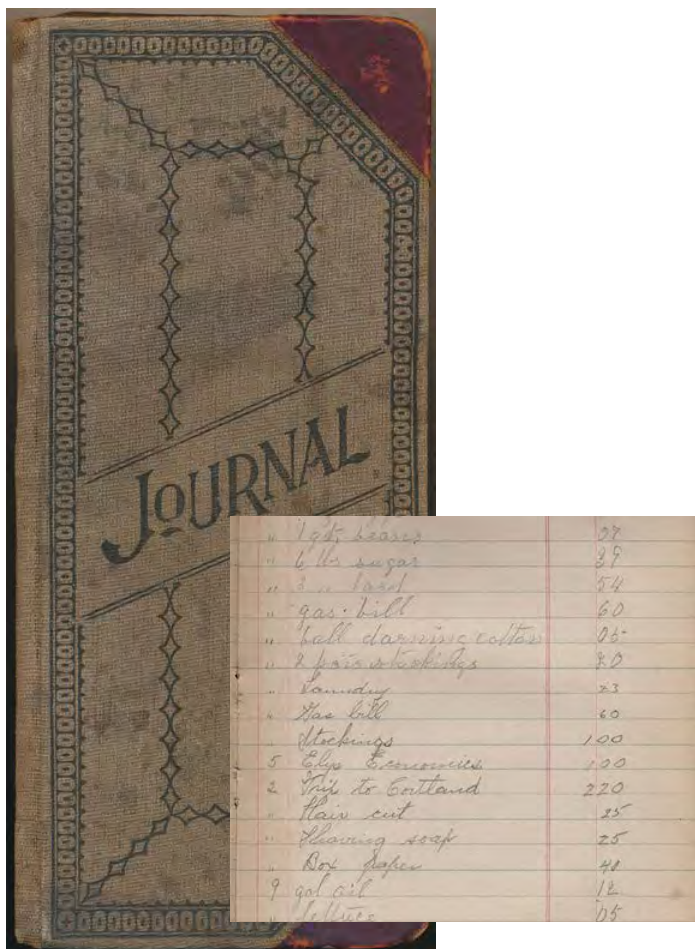 JOURNAL
" 1 qt. beans 07
" 6 lbs sugar 39
" 3 " lard 54
" gas bill 60
" ball darning cotton 05
" 2 pair stockings
" Laundry 23
" Gas bill 60
" Stockings 100
5 Elys Economics 100
2 Trip to Cortland 220
" Hair cut 25
" Shaving soap 25
" Box paper 40
9 gal oil 12
" lettuce 05